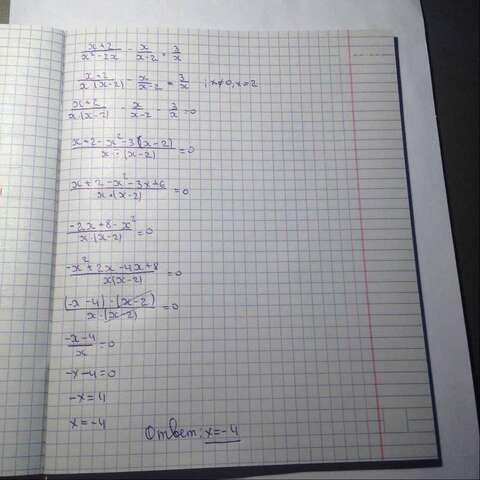 (x+2)/(x²-2x) - x/(x-2) = 3/x
(x+2)/(x·(x-2)) - x/(x-2) = 3/x ; x≠0, x=2
(x+2)/(x·(x-2)) - x/(x-2) - 3/x = 0
(x+2-x²-3(x-2))/(x·(x-2)) = 0
(x+2-x²-3x+6)/(x·(x-2)) = 0
(-2x+8-x²)/(x·(x-2)) = 0
(-x²+2x-4x+8)/(x(x-2)) = 0
((-x-4)·(x-2))/(x·(x-2)) = 0
(-x-4)/x = 0
-x-4=0
-x=4
x=-4
Ответ: x=-4